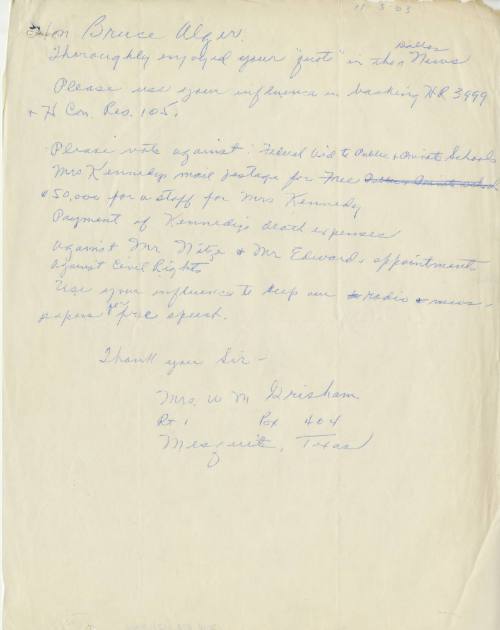 Hon Bruce Alger.
Thoroughly enjoyed your "quote" in the Dallas News
Please use your influence in backing HR 3999
+ H Con. Res. 105.
Please vote against: Federal Aid to Public + Private Schools
Mrs Kennedys mail postage for free
$50,000 for a staff for Mrs Kennedy
Payment of Kennedys death expenses
against Mr Nitze & Mr Edwards appointments
against Civil Rights
Use your influence to keep our radio + news-
papers free speech.
Thank you Sir -
Mrs. W M Grisham
Rt 1 Box 404
Mesquite, Texas